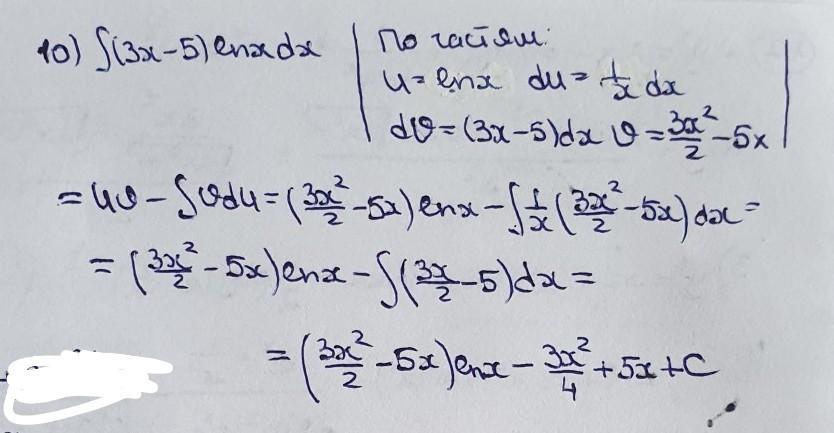 10) ∫(3x-5)lnxdx | По частям:
u=lnx du=1/x dx
dv=(3x-5)dx v=3x²/2-5x
=uv-∫vdu=(3x²/2-5x)lnx-∫1/x(3x²/2-5x)dx=
=(3x²/2-5x)lnx-∫(3x/2-5)dx=
=(3x²/2-5x)lnx-3x²/4+5x+C